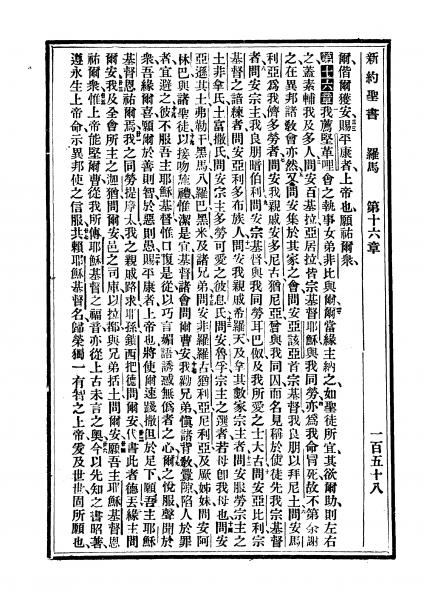 新約聖書　羅馬　第十六章　一百五十八
爾偕爾獲安賜平康者上帝也願祐爾衆
第十六章我薦堅革哩會之執事女弟非比與爾爾當緣主納之如聖徒所宜其欲爾助則左右
之蓋素輔我及多人問安百基拉亞居拉皆宗基督耶穌與我同勞亦爲我命冒死故不第余謝
之在異邦諸敎會亦然又問安集於其家之會問安亞該亞首宗基督我良朋以拜尼土問安馬
利亞爲我儕多勞者問安我親戚安多尼古猶尼亞曾與我同囚而名見稱於使徒先我宗基督
者問安宗主我良朋暗伯利問安宗基督與我同勞耳巴伮及我所愛之士大古問安亞比利宗
基督之諳練者問安亞利多布族人問安我親戚希羅天及拿其數家宗主者問安服勞宗主之
土非拿氏土富撒氏問安宗主多勞可愛之彼息氏問安魯孚宗主之選者若母卽我母也問安
亞遜其土弗勒干黑馬八羅巴黑米及諸兄弟問安非羅羅古猶利亞尼利亞及厥姊妹問安阿
林巴與諸聖徒以接吻施禮惟潔是宜基督諸會問爾曹安我勸兄弟愼諸背敎置隙陷人於罪
者宜避之彼不服吾主耶穌基督惟口腹是從以巧言媚語誘惑無僞者之心爾之悅服聲聞於
衆吾緣爾喜願爾於善則智於惡則愚賜平康者上帝也將使爾速踐撒但於足下願吾主耶穌
基督恩祐爾焉我之同勞提摩太我之親戚路求耶孫鎖西把德問爾安代書此者德丢緣主問
爾安我及全會所主之迦猶問爾安邑之司庫以拉都與兄弟括土問爾安願吾主耶穌基督恩
祐爾衆惟上帝能堅爾曹從我所傳耶穌基督之福音亦從上古未言之奧今以先知之書昭著
遵永生上帝命示異邦使之信服其賴耶穌基督名歸榮獨一有智之上帝爰及世世固所願也